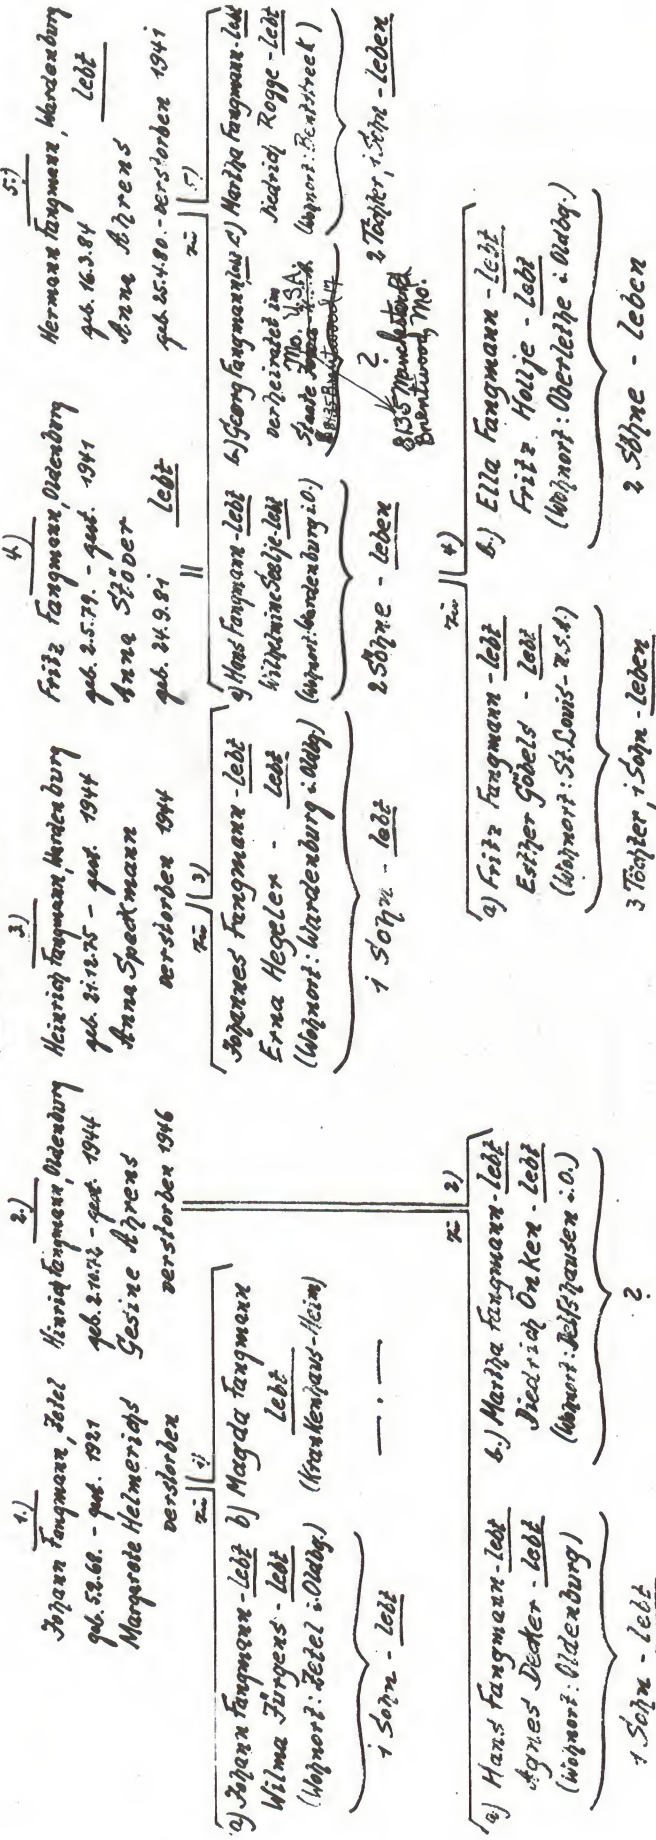 1.)
Johann Fangmann, Zetel
geb. 5.2.68. - gest. 1921
Margarete Helmerichs
verstorben
2.)
Hinrich Fangmann, Oldenburg
geb. 2.10.72 - gest. 1944
Gesine Ahrens
verstorben 1946
3.)
Heinrich Fangmann, Wardenburg
geb. 21.12.75 - gest. 1944
Anna Speckmann
verstorben 1944
4.)
Fritz Fangmann, Oldenburg
geb. 2.5.79. - gest. 1941
Anna Stöver
geb. 24.9.81 lebt
5.)
Hermann Fangmann, Wardenburg
lebt
geb. 16.3.84
Anna Ahrens
geb. 25.4.80. - verstorben 1941
Zu 1)
a) Johann Fangmann - lebt
Wilma Jürgens - lebt
(Wohnort: Zetel i. Oldbg.)
1 Sohn - lebt
b) Magda Fangmann
lebt
(Krankenhaus-Heim)
— . —
Zu 3)
Johannes Fangmann - lebt
Erna Hegeler - lebt
(Wohnort: Wardenburg i. Oldbg)
1 Sohn - lebt
Zu 5)
a) Hans Fangmann - lebt
Wilhelmine Seelje - lebt
(Wohnort: Wardenburg i.O.)
2 Söhne - leben
b.) Georg Fangmann, lebt
verheiratet im
Mo. U.S.A.
Staate
?
8135 Manchester Rd
Brentwood, Mo.
c) Martha Fangmann - lebt
Diedrich Rogge - lebt
(Wohnort: Benthstreek)
2 Töchter, 1 Sohn - leben
Zu 2)
a) Hans Fangmann - lebt
Agnes Decker - lebt
(Wohnort: Oldenburg)
1 Sohn - lebt
b.) Martha Fangmann - lebt
Diedrich Onken - lebt
(Wohnort: Delfshausen i.O.)
?
Zu 4)
a) Fritz Fangmann - lebt
Esther Göbels - lebt
(Wohnort: St. Louis - U.S.A)
3 Töchter, 1 Sohn - leben
b.) Ella Fangmann - lebt
Fritz Hollje - lebt
(Wohnort: Oberlethe i. Oldbg.)
2 Söhne - leben